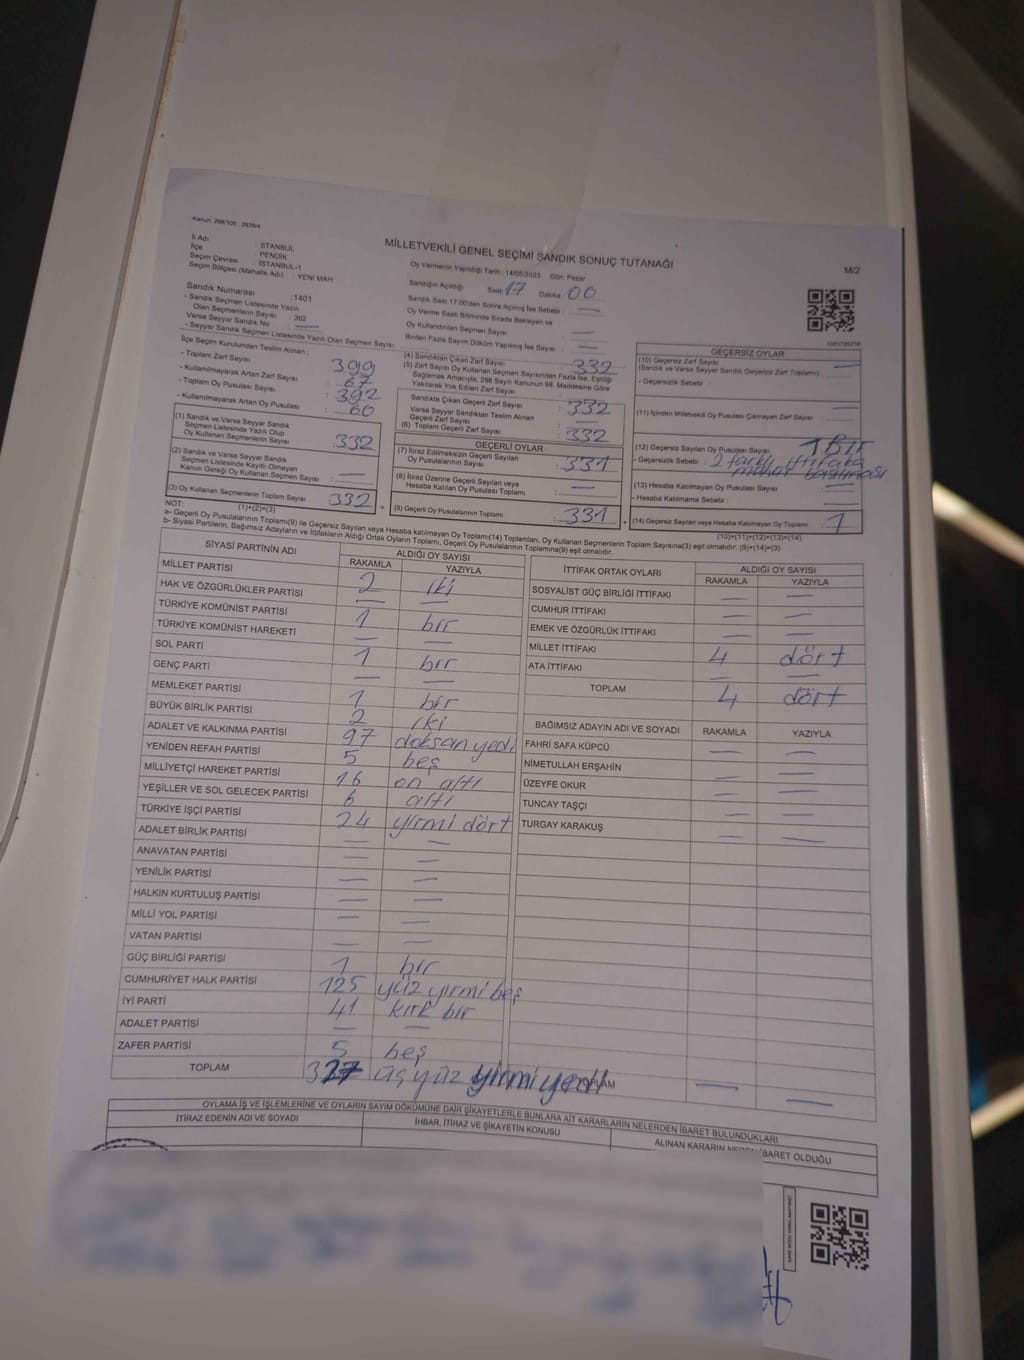 Kanun: 298/105 - 2839/4
MİLLETVEKİLİ GENEL SEÇİMİ SANDIK SONUÇ TUTANAĞI
M/2
İl Adı : STANBUL
İlçe : PENDİK
Seçim Çevresi : İSTANBUL-1
Seçim Bölgesi (Mahalle Adı) : YENİ MAH.
Sandık Numarası :1401
- Sandık Seçmen Listesinde Yazılı
Olan Seçmenlerin Sayısı : 362
Varsa Seyyar Sandık No : —
- Seyyar Sandık Seçmen Listesinde Yazılı Olan Seçmen Sayısı:
Oy Vermenin Yapıldığı Tarih : 14/05/2023 Gün: Pazar
Sandığın Açıldığı Saat: 17 Dakika 00
Sandık Saat 17.00'den Sonra Açılmış İse Sebebi : —
Oy Verme Saati Bitiminde Sırada Bekleyen ve
Oy Kullandırılan Seçmen Sayısı : —
Birden Fazla Sayım Döküm Yapılmış İse Sayısı : —
İlçe Seçim Kurulundan Teslim Alınan :
- Toplam Zarf Sayısı : 399
- Kullanılmayarak Artan Zarf Sayısı : 67
- Toplam Oy Pusulası Sayısı : 392
- Kullanılmayarak Artan Oy Pusulası : 60
(1) Sandık ve Varsa Seyyar Sandık
Seçmen Listesinde Yazılı Olup
Oy Kullanan Seçmenlerin Sayısı : 332
(2) Sandık ve Varsa Seyyar Sandık
Seçmen Listesinde Kayıtlı Olmayan
Kanun Gereği Oy Kullanan Seçmen Sayısı : —
(3) Oy Kullanan Seçmenlerin Toplam Sayısı : 332
(1)+(2)=(3)
(4) Sandıktan Çıkan Zarf Sayısı : 332
(5) Zarf Sayısı Oy Kullanan Seçmen Sayısından Fazla İse, Eşitliği
Sağlamak Amacıyla; 298 Sayılı Kanunun 98. Maddesine Göre
Yakılarak Yok Edilen Zarf Sayısı : —
Sandıkta Çıkan Geçerli Zarf Sayısı : 332
Varsa Seyyar Sandıktan Teslim Alınan
Geçerli Zarf Sayısı : —
(6) Toplam Geçerli Zarf Sayısı : 332
GEÇERLİ OYLAR
(7) İtiraz Edilmeksizin Geçerli Sayılan
Oy Pusulalarının Sayısı : 331
(8) İtiraz Üzerine Geçerli Sayılan veya
Hesaba Katılan Oy Pusulası Toplamı : —
(9) Geçerli Oy Pusulalarının Toplamı : 331
GEÇERSİZ OYLAR
(10) Geçersiz Zarf Sayısı
(Sandık ve Varsa Seyyar Sandık Geçersiz Zarf Toplamı) : —
- Geçersizlik Sebebi :
(11) İçinden Milletvekili Oy Pusulası Çıkmayan Zarf Sayısı : —
(12) Geçersiz Sayılan Oy Pusulası Sayısı : 1 Bir
- Geçersizlik Sebebi : 2 farklı ittifaka
mühür basılması
(13) Hesaba Katılmayan Oy Pusulası Sayısı : —
- Hesaba Katılmama Sebebi : —
(14) Geçersiz Sayılan veya Hesaba Katılmayan Oy Toplamı : 1
(10)+(11)+(12)+(13)=(14)
NOT:
a- Geçerli Oy Pusulalarının Toplamı(9) ile Geçersiz Sayılan veya Hesaba katılmayan Oy Toplamı(14) Toplamları, Oy Kullanan Seçmenlerin Toplam Sayısına(3) eşit olmalıdır. (9)+(14)=(3)
b- Siyasi Partilerin, Bağımsız Adayların ve İttifakların Aldığı Ortak Oyların Toplamı, Geçerli Oy Pusulalarının Toplamına(9) eşit olmalıdır.
SİYASİ PARTİNİN ADI
ALDIĞI OY SAYISI
RAKAMLA YAZIYLA
MİLLET PARTİSİ 2 iki
HAK VE ÖZGÜRLÜKLER PARTİSİ — —
TÜRKİYE KOMÜNİST PARTİSİ 1 bir
TÜRKİYE KOMÜNİST HAREKETİ — —
SOL PARTİ 1 bir
GENÇ PARTİ — —
MEMLEKET PARTİSİ 1 bir
BÜYÜK BİRLİK PARTİSİ 2 iki
ADALET VE KALKINMA PARTİSİ 97 doksan yedi
YENİDEN REFAH PARTİSİ 5 beş
MİLLİYETÇİ HAREKET PARTİSİ 16 on altı
YEŞİLLER VE SOL GELECEK PARTİSİ 6 altı
TÜRKİYE İŞÇİ PARTİSİ 24 yirmi dört
ADALET BİRLİK PARTİSİ — —
ANAVATAN PARTİSİ — —
YENİLİK PARTİSİ — —
HALKIN KURTULUŞ PARTİSİ — —
MİLLİ YOL PARTİSİ — —
VATAN PARTİSİ — —
GÜÇ BİRLİĞİ PARTİSİ 1 bir
CUMHURİYET HALK PARTİSİ 125 yüz yirmi beş
İYİ PARTİ 41 kırk bir
ADALET PARTİSİ — —
ZAFER PARTİSİ 5 beş
TOPLAM 327 üç yüz yirmi yedi
İTTİFAK ORTAK OYLARI
ALDIĞI OY SAYISI
RAKAMLA YAZIYLA
SOSYALİST GÜÇ BİRLİĞİ İTTİFAKI — —
CUMHUR İTTİFAKI — —
EMEK VE ÖZGÜRLÜK İTTİFAKI — —
MİLLET İTTİFAKI 4 dört
ATA İTTİFAKI — —
TOPLAM 4 dört
BAĞIMSIZ ADAYIN ADI VE SOYADI RAKAMLA YAZIYLA
FAHRİ SAFA KÜPCÜ — —
NİMETULLAH ERŞAHİN — —
ÜZEYFE OKUR — —
TUNCAY TAŞÇI — —
TURGAY KARAKUŞ — —
TOPLAM — —
OYLAMA İŞ VE İŞLEMLERİNE VE OYLARIN SAYIM DÖKÜMÜNE DAİR ŞİKAYETLERLE BUNLARA AİT KARARLARIN NELERDEN İBARET BULUNDUKLARI
İTİRAZ EDENİN ADI VE SOYADI
İHBAR, İTİRAZ VE ŞİKAYETİN KONUSU
ALINAN KARARIN NEDEN İBARET OLDUĞU